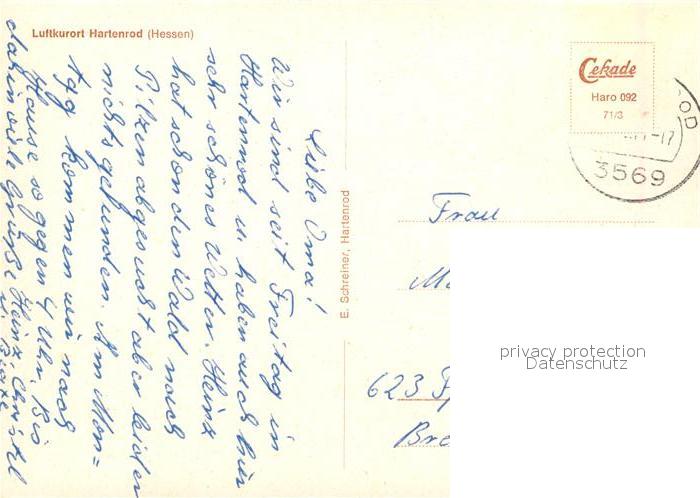 Luftkurort Hartenrod (Hessen)
Liebe Oma!
Wir sind seit Freitag in
Hartenrod u. haben auch hier
sehr schönes Wetter. Heinz
hat schon den Wald nach
Pilzen abgesucht aber leider
nichts gefunden. Am Mon=
tag kommen wir nach
Hause so gegen 4 Uhr. Bis
dahin viele Grüße Heinz Christel
u. Beate
E. Schreiner, Hartenrod
Cekade
Haro 092
71/3
OD
-17
3569
Frau
623
privacy protection
Datenschutz